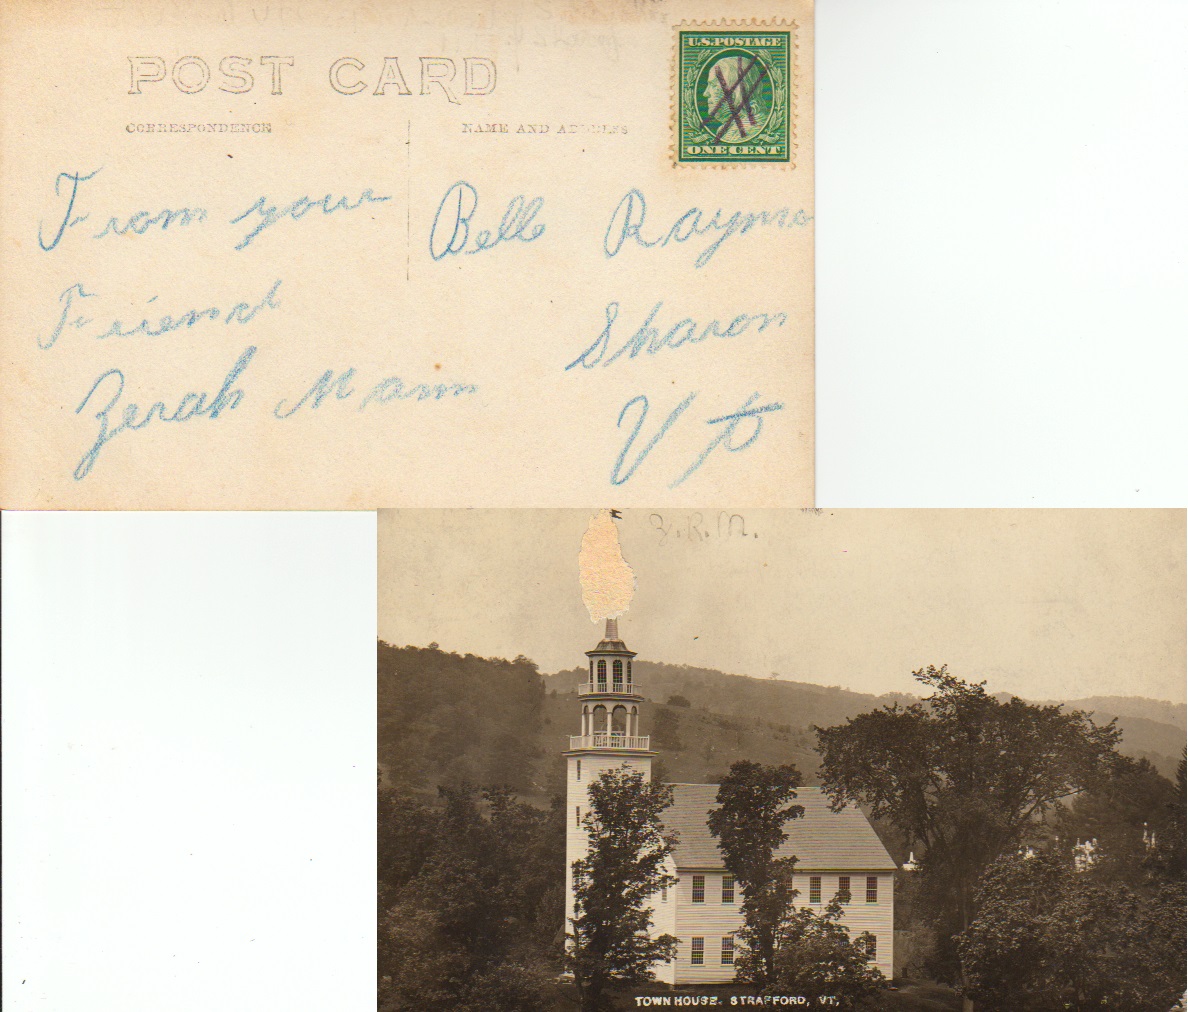 POST CARD
CORRESPONDENCE
NAME AND ADDRESS
U.S. POSTAGE
ONE CENT
From your
Friend
Zerah Mann
Belle Raymo
Sharon
Vt
Z.R.M.
TOWN HOUSE. STRAFFORD, VT,